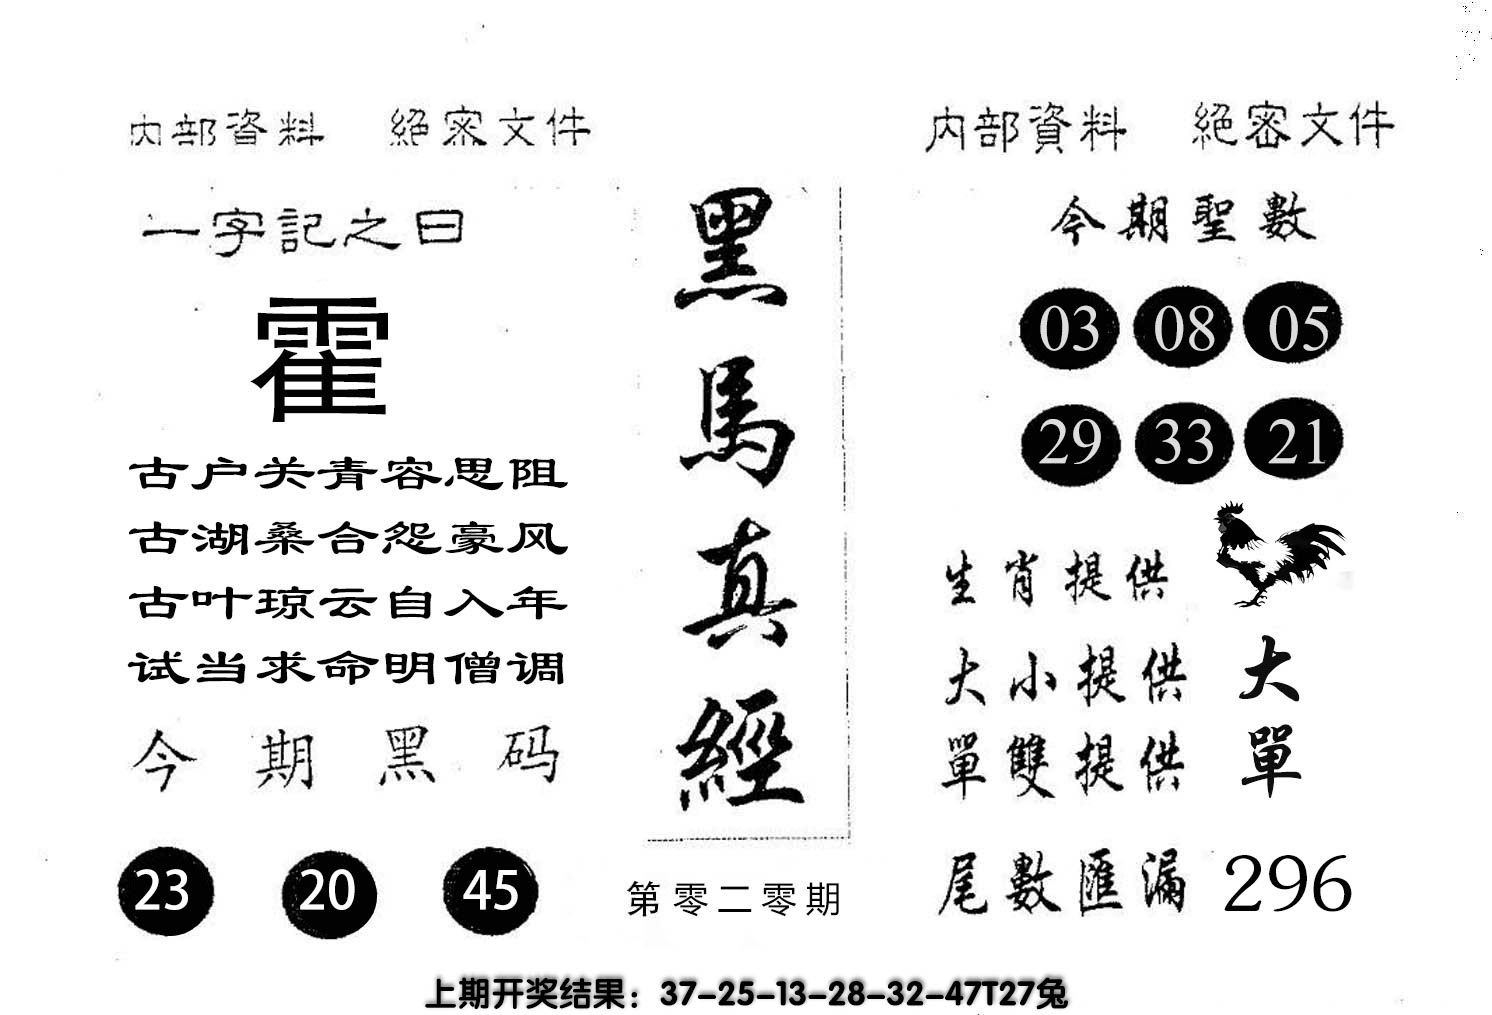 内部資料 絕密文件
一字記之曰
霍
古户关青容思阻
古湖桑合怨豪风
古叶琼云自入年
试当求命明僧调
今期黑码
23 20 45
黑馬真經
第零二零期
内部資料 絕密文件
今期聖數
03 08 05
29 33 21
生肖提供
大小提供 大
單雙提供 單
尾數匯漏 296
上期开奖结果：37-25-13-28-32-47T27兔